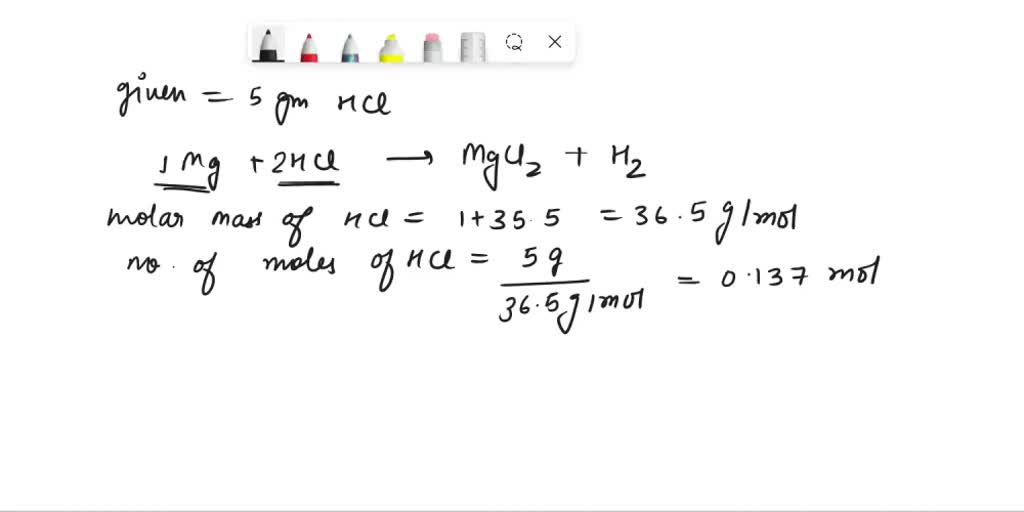 given = 5 gm HCl
1Mg + 2HCl → MgCl2 + H2
molar mass of HCl = 1+35.5 = 36.5 g/mol
no. of moles of HCl = 5g / 36.5g/mol = 0.137 mol